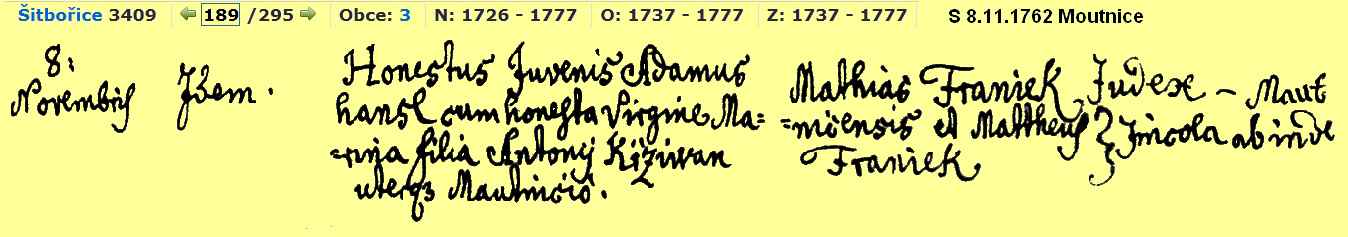 Šitbořice 3409 189 /295 Obce: 3 N: 1726 - 1777 O: 1737 - 1777 Z: 1737 - 1777 S 8.11.1762 Moutnice
8:
Novembris
Idem.
Honestus Juvenis Adamus
hansl cum honesta Virgine Ma-
=rina filia Antonij Kižiwan
uterq3 Mautnicio.
Mathias Franiek Judex – Maut
=nicensis et Mattheus
Franiek
Jincola ab inde